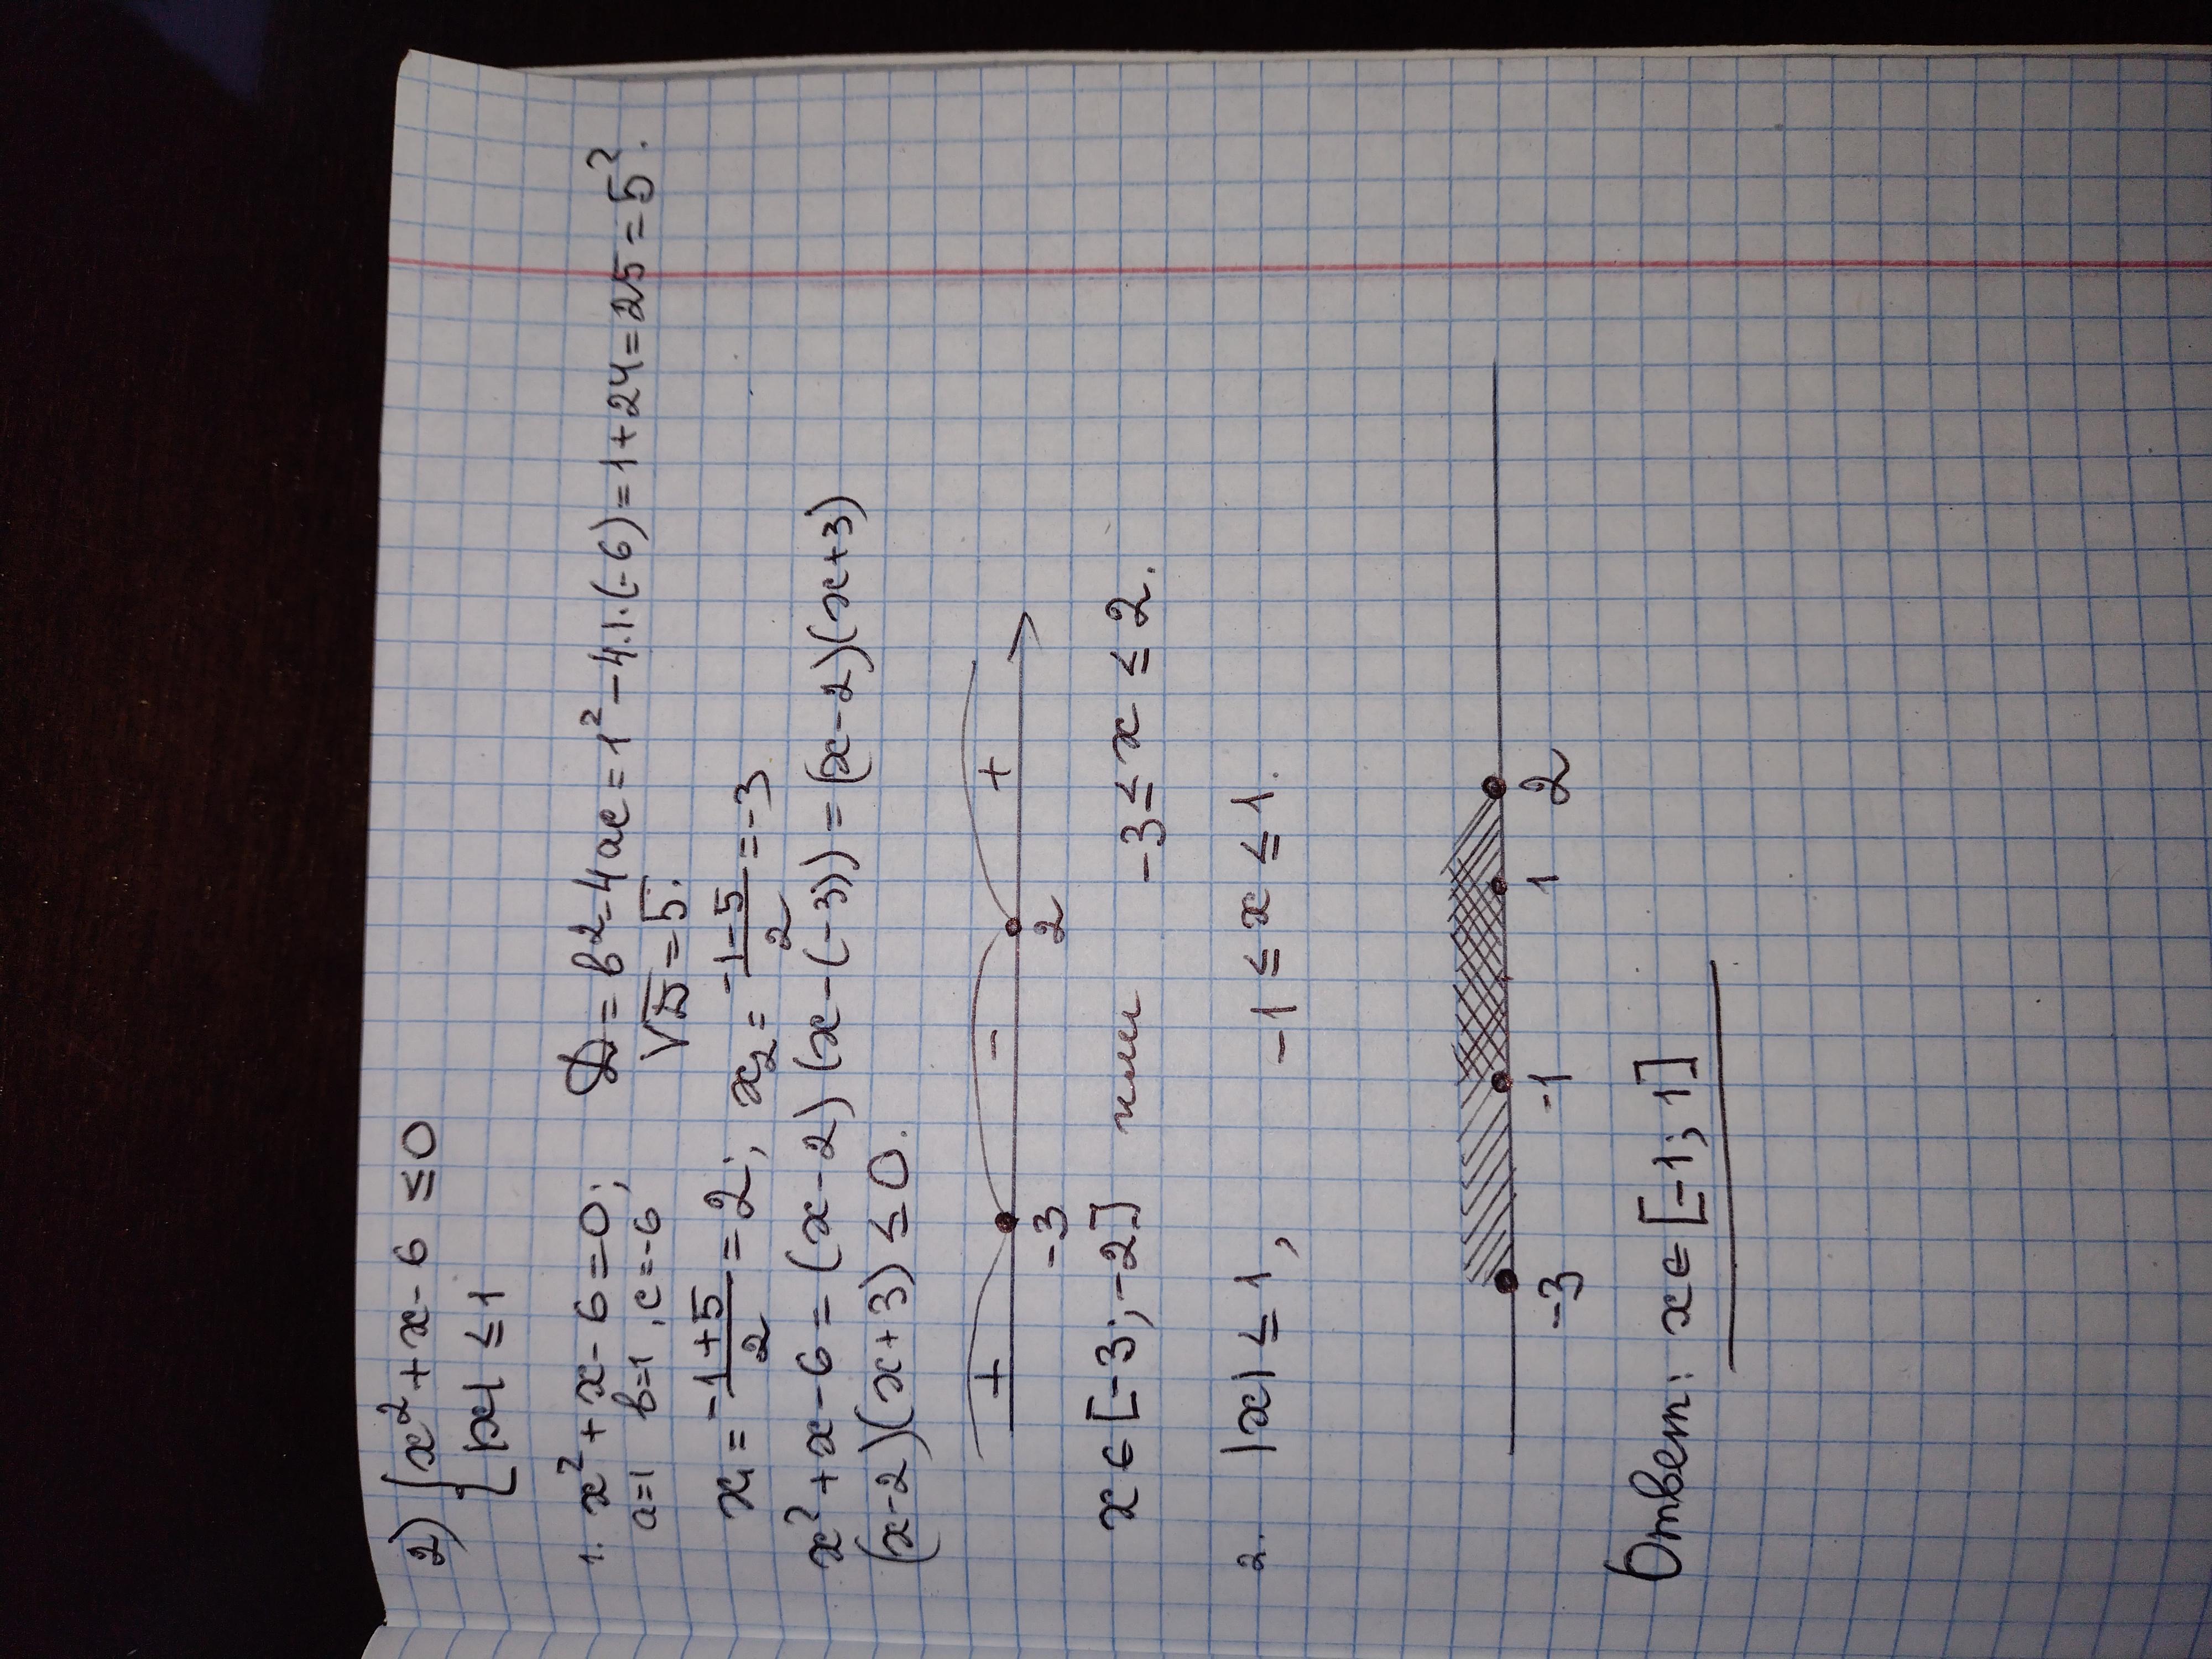 2) { x² + x - 6 ≤ 0
|x| ≤ 1
1. x² + x - 6 = 0; D = b² - 4ac = 1² - 4·1·(-6) = 1 + 24 = 25 = 5².
a=1 b=1, c=-6 √D = 5.
x₁ = (-1+5)/2 = 2; x₂ = (-1-5)/2 = -3
x² + x - 6 = (x-2)(x-(-3)) = (x-2)(x+3)
(x-2)(x+3) ≤ 0.
+ - +
-3 2
x ∈ [-3; -2] или -3 ≤ x ≤ 2.
2. |x| ≤ 1, -1 ≤ x ≤ 1.
-3 -1 1 2
Ответ: x ∈ [-1; 1]